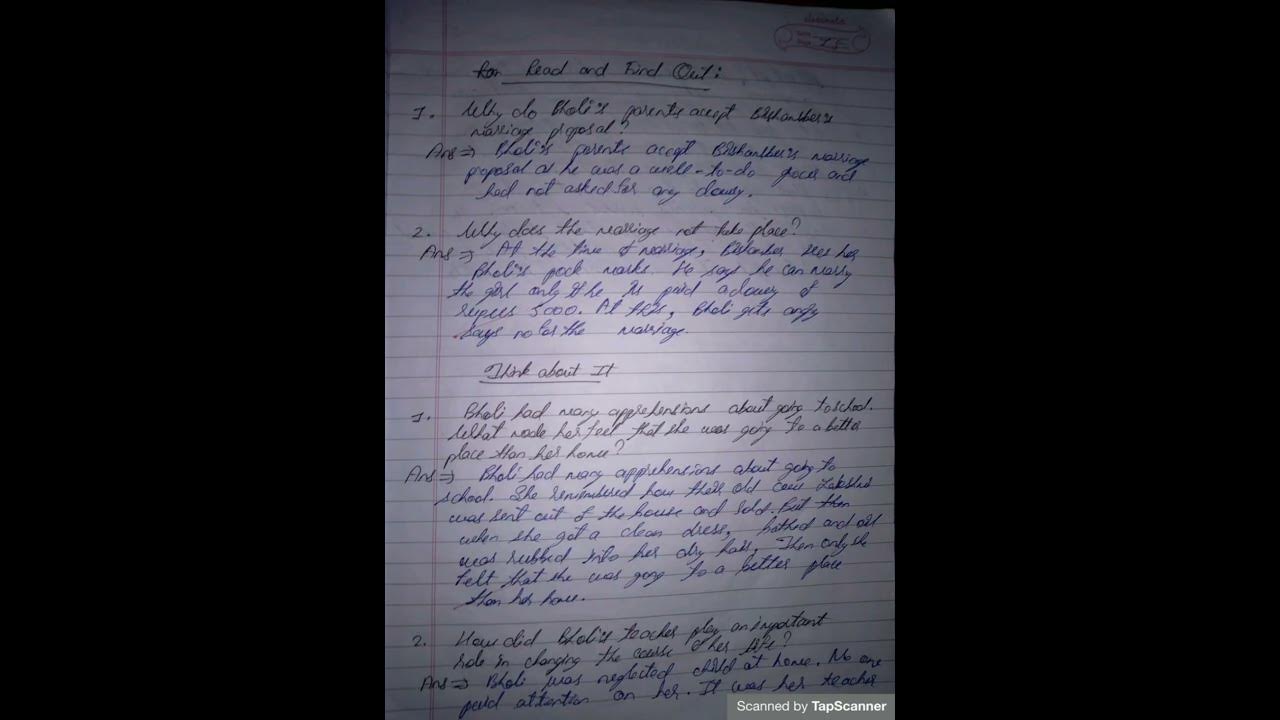 Read and Find Out:
1. Why do Bholi's parents accept Bishamber's
marriage proposal?
Ans ⇒ Bholi's parents accept Bishamber's marriage
proposal as he was a well-to-do grocer and
had not asked for any dowry.
2. Why does the marriage not take place?
Ans ⇒ At the time of marriage, Bishamber sees her
Bholi's pock marks. He says he can marry
the girl only if he is paid a dowry of
rupees 5000. At this, Bholi gets angry
says no for the marriage.
Think about It
1. Bholi had many apprehensions about going to school.
What made her feel that she was going to a better
place than her home?
Ans ⇒ Bholi had many apprehensions about going to
school. She remembered how their old cow
was sent out of the house and sold. But then
when she got a clean dress, bathed and oil
was rubbed into her dry hair, Then only she
felt that she was going to a better place
than her home.
2. How did Bholi's teacher play an important
role in changing the course of her life?
Ans ⇒ Bholi was neglected child at home. No one
paid attention on her. It was her teacher
Scanned by TapScanner